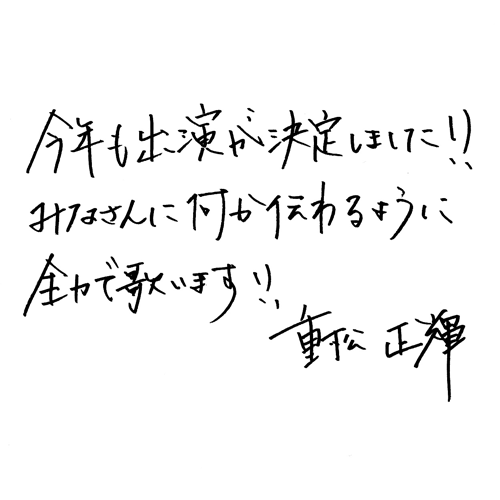 今年も出演が決定しました!!
みなさんに何か伝わるように
全力で歌います!!
重松 正輝